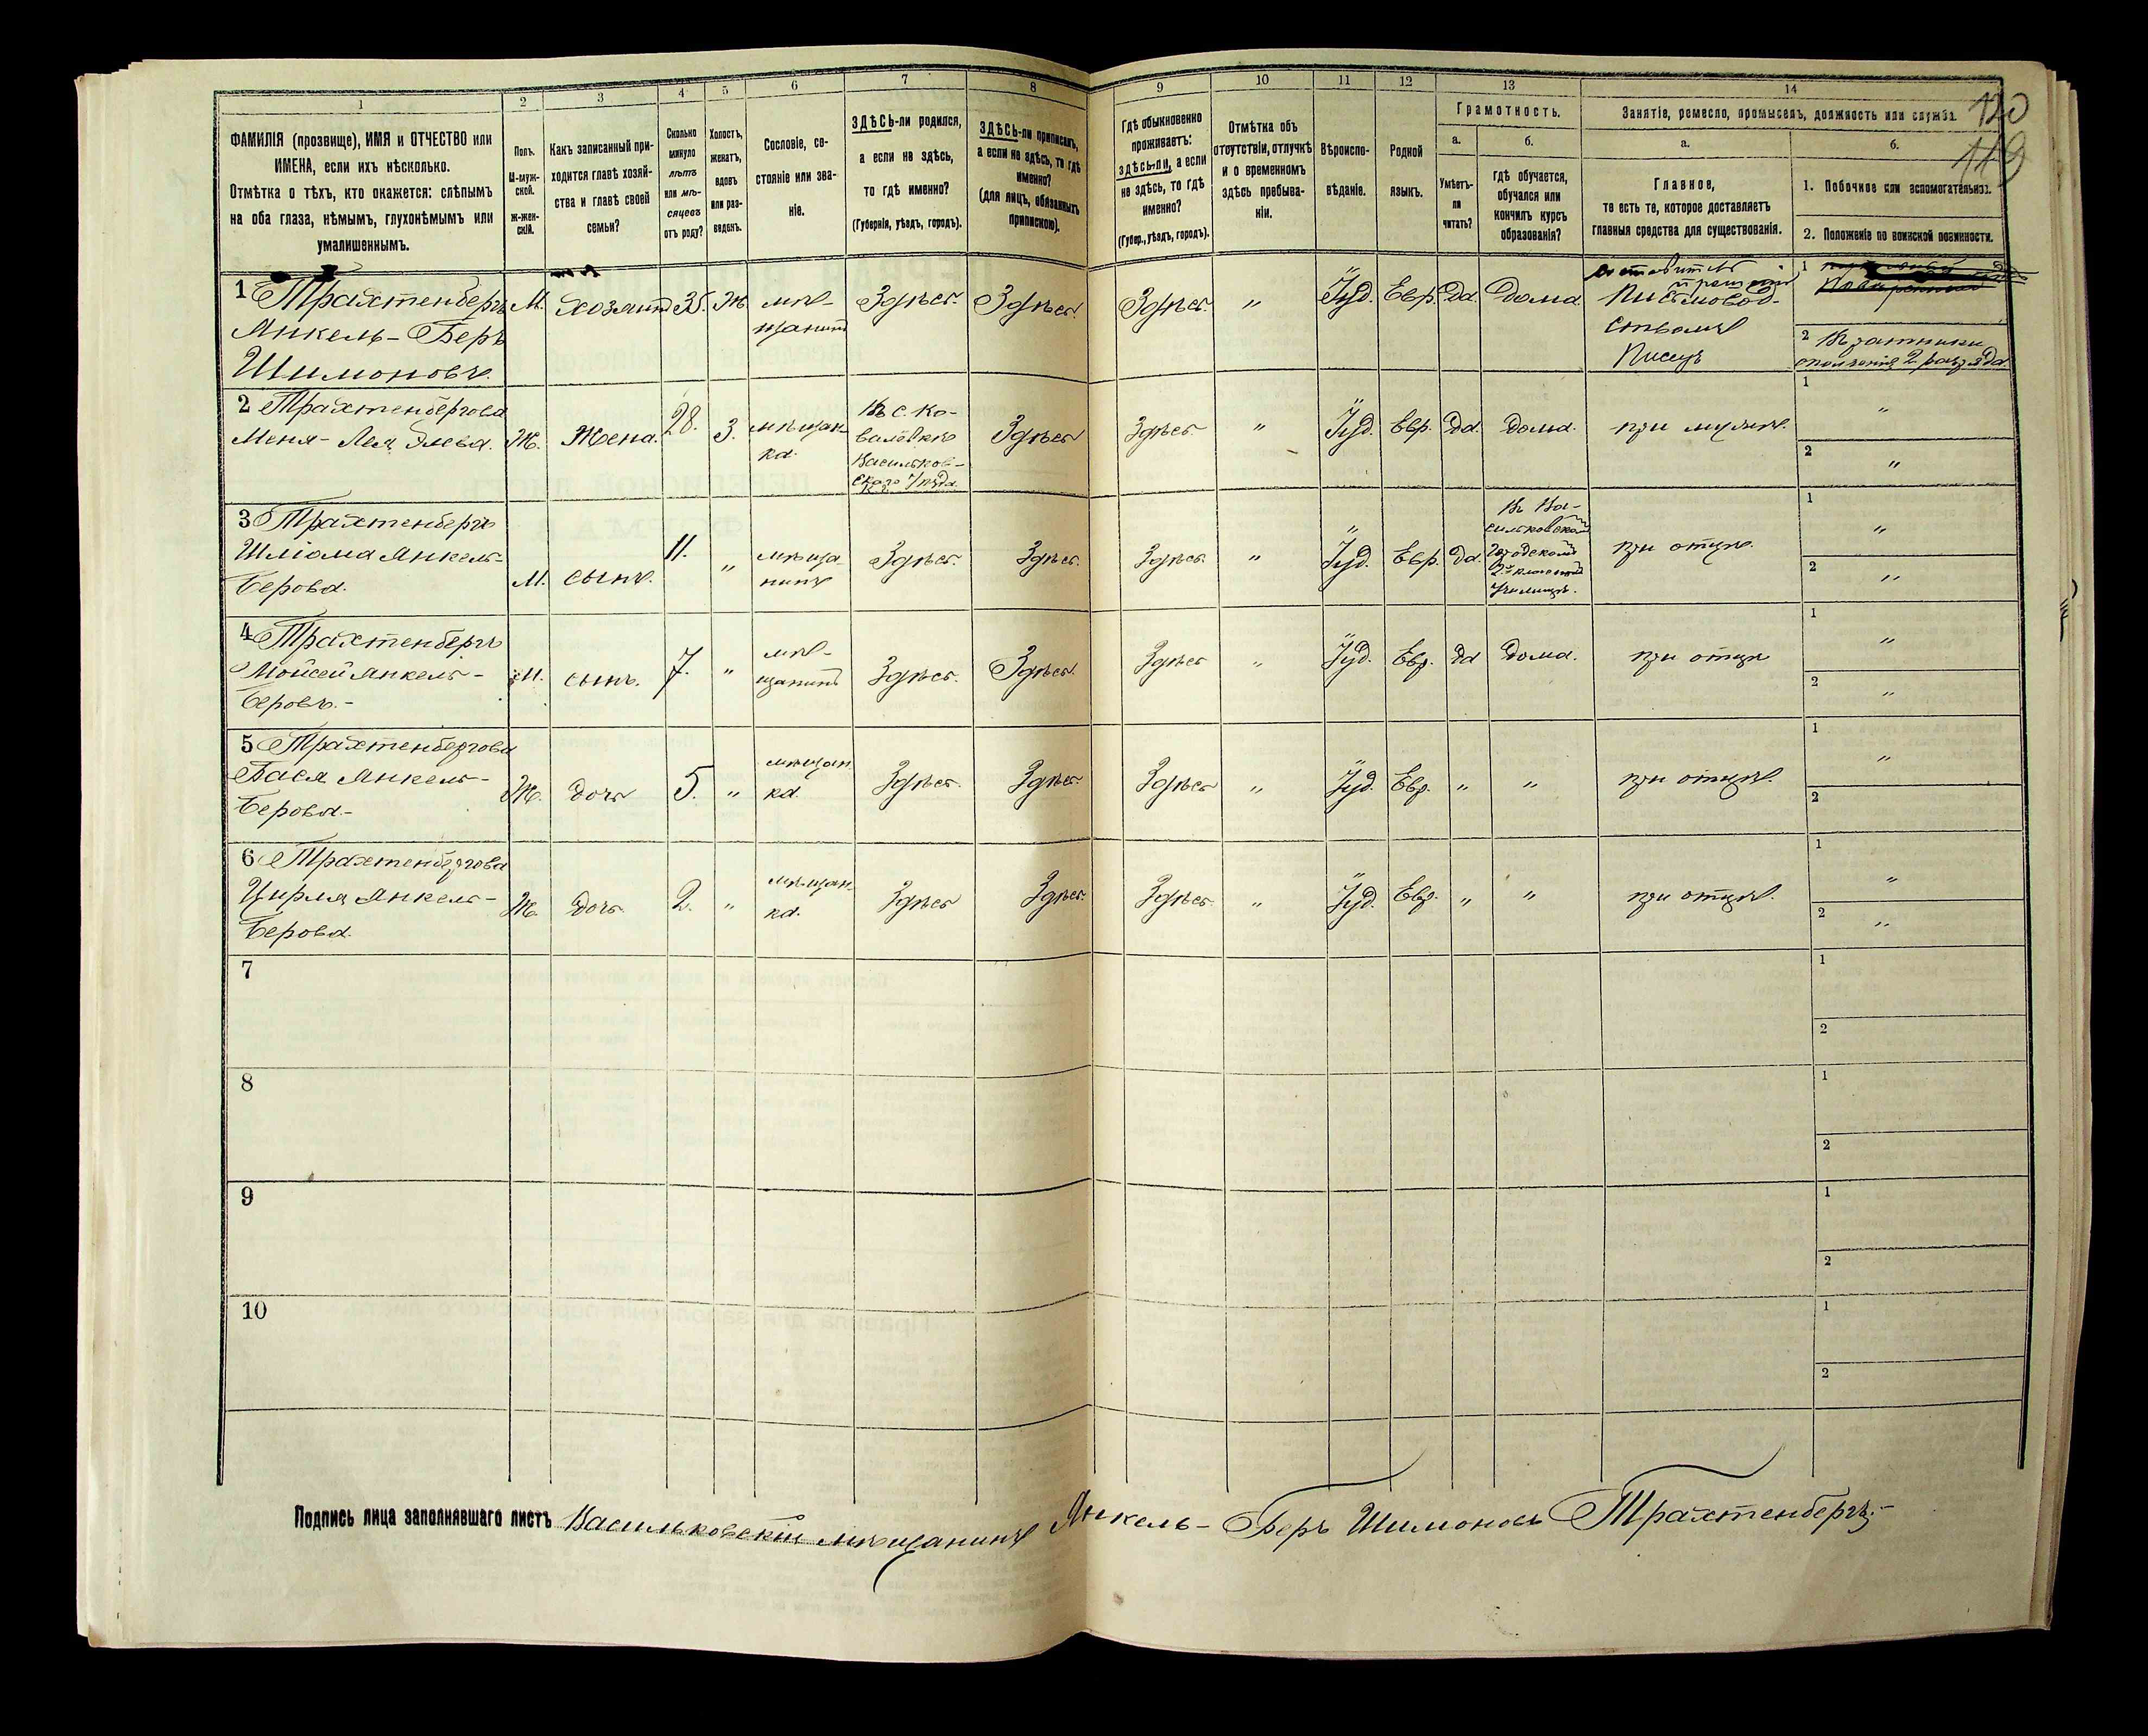 1
2
3
4
5
6
7
8
9
10
11
12
13
14
120
119
ФАМИЛІЯ (прозвище), ИМЯ и ОТЧЕСТВО или
ИМЕНА, если ихъ нѣсколько.
Отмѣтка о тѣхъ, кто окажется: слѣпымъ
на оба глаза, нѣмымъ, глухонѣмымъ или
умалишеннымъ.
Полъ.
М-муж-
ской.
Ж-жен-
скій.
Какъ записанный при-
ходится главѣ хозяй-
ства и главѣ своей
семьи?
Сколько
минуло
лѣтъ
или мѣ-
сяцевъ
отъ роду?
Холостъ,
женатъ,
вдовъ
или раз-
веденъ.
Сословіе, со-
стояніе или зва-
ніе.
ЗДѢСЬ-ли родился,
а если не здѣсь,
то гдѣ именно?
(Губернія, уѣздъ, городъ).
ЗДѢСЬ-ли приписанъ,
а если не здѣсь, то гдѣ
именно?
(для лицъ, обязанныхъ
припискою).
Гдѣ обыкновенно
проживаетъ:
здѣсь-ли, а если
не здѣсь, то гдѣ
именно?
(Губер., уѣздъ, городъ).
Отмѣтка объ
отсутствіи, отлучкѣ
и о временномъ
здѣсь пребыва-
ніи.
Вѣроиспо-
вѣданіе.
Родной
языкъ.
Грамотность.
а.
Умѣетъ-
ли
читать?
б.
гдѣ обучается,
обучался или
кончилъ курсъ
образованія?
Занятіе, ремесло, промыселъ, должность или служба.
а.
Главное,
то есть то, которое доставляетъ
главныя средства для существованія.
б.
1. Побочное или вспомогательное.
2. Положеніе по воинской повинности.
1 Трахтенбергъ
Янкель-Беръ
Шимоновъ.
М. хозяинъ 35. Ж. мѣ-
щанинъ
Здѣсь. Здѣсь. Здѣсь. " Іуд. Евр. Да. Дома.
составитель
прошеній
Письмовод-
ствомъ
Писецъ
1
2 Въ ратники
ополченія 2 разряда.
2 Трахтенбергова
Меня-Лея Элева. Ж. Жена. 28. З. мѣщан-
ка.
Въ с. Ко-
валёвкѣ
Васильков-
скаго уѣзда.
Здѣсь Здѣсь. " Іуд. Евр. Да. Дома. при мужѣ.
1 "
2 "
3 Трахтенбергъ
Шліома Янкель-
Берова.
М. сынъ. 11. " мѣща-
нинъ
Здѣсь. Здѣсь. Здѣсь. " Іуд. Евр. Да.
Въ Ва-
сильковскомъ
Городскомъ
2хъ классномъ
Училищѣ.
при отцѣ.
1 "
2 "
4 Трахтенбергъ
Мойсей Янкель-
Беровъ.-
М. сынъ. 7. " мѣ-
щанинъ
Здѣсь. Здѣсь. Здѣсь " Іуд. Евр. Да Дома. при отцѣ
1 "
2 "
5 Трахтенбергова
Бася Янкель-
Берова.-
Ж. дочь 5. " мѣщан-
ка.
Здѣсь. Здѣсь. Здѣсь " Іуд. Евр. " " при отцѣ.
1 "
2
6 Трахтенбергова
Цирля Янкель-
Берова.
Ж. дочь. 2. " мѣщан-
ка.
Здѣсь Здѣсь. Здѣсь. " Іуд. Евр. " " при отцѣ.
1 "
2 "
7
1
2
8
1
2
9
1
2
10
1
2
Подпись лица заполнявшаго листъ Васильковскій мѣщанинъ Янкель-Беръ Шимоновъ Трахтенбергъ.-